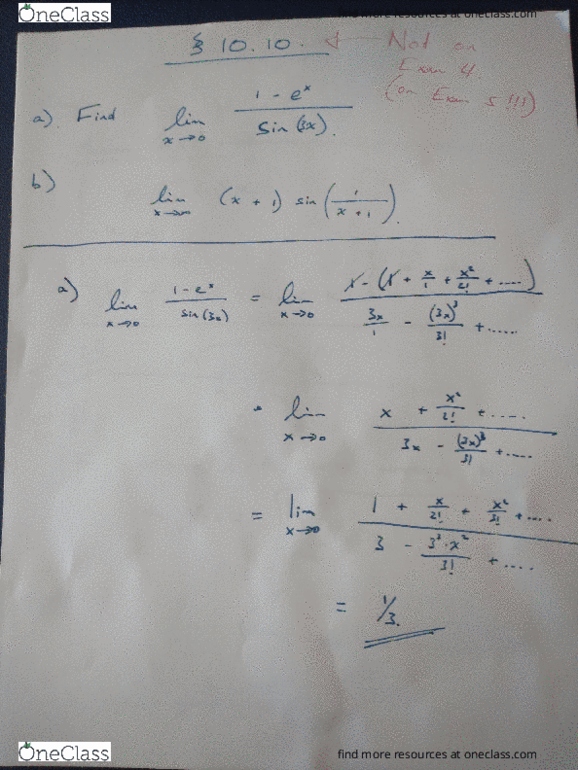 OneClass
find more resources at oneclass.com
§ 10.10. ← Not on
Exam 4.
(on Exam 5 !!!)
a). Find lim x→0 (1 - e^x)/(sin(3x)).
b) lim x→∞ (x + 1) sin(1/(x + 1)).
a) lim x→0 (1 - e^x)/(sin(3x)) = lim x→0 (1 - (1 + x/1 + x²/2! + ....))/(3x/1 - (3x)³/3! + .....)
lim x→0 (x + x²/2! + ....)/(3x - (3x)³/3! + ....)
= lim x→0 (1 + x/2! + x²/3! + ....)/(3 - 3³·x²/3! + ....)
= 1/3.
OneClass
find more resources at oneclass.com